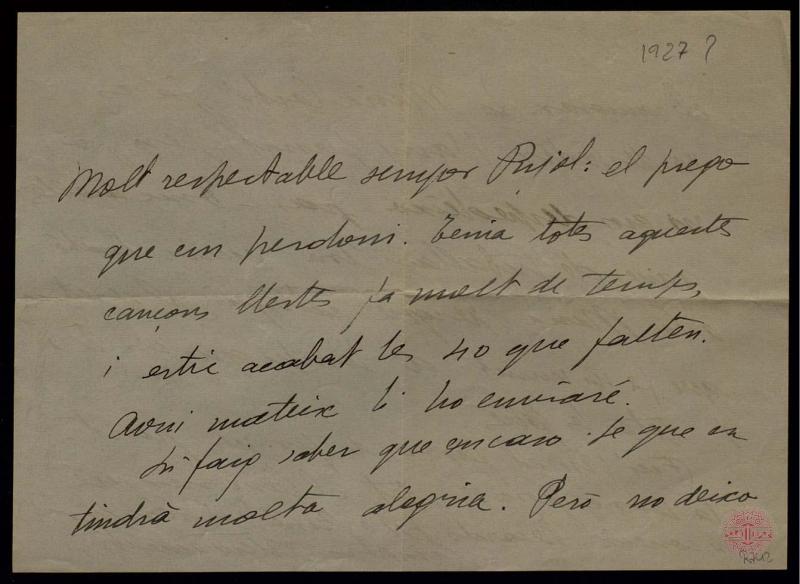 1927?
Molt respectable senyor Pujol: el prego
que em perdoni. Tenia totes aquestes
cançons llestes fa molt de temps,
i estic acabat les 40 que falten.
Avui mateix li ho enviaré.
Li faig saber que encara se que en
tindrà molta alegria. Però no deixo